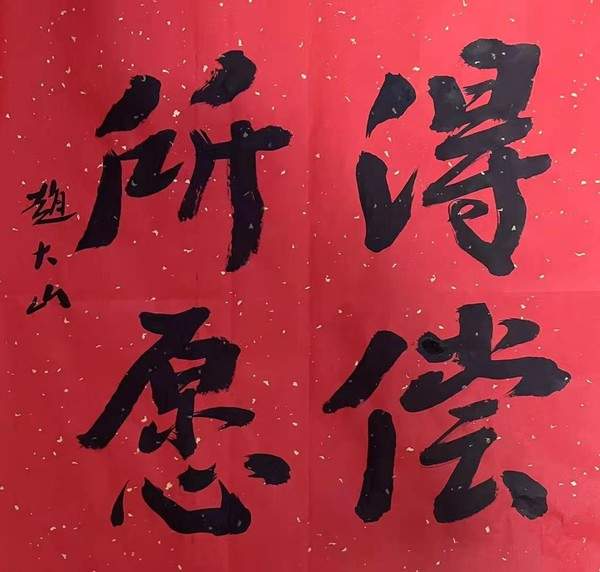 得偿
所愿
趙大山